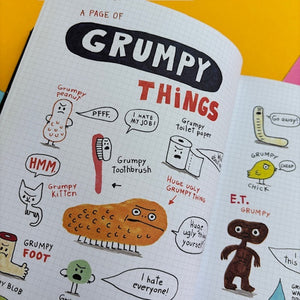 A PAGE OF
GRUMPY
THiNGS
Grumpy
peanut
PFFF.
I HATE
MY JOB!
Grumpy
Toilet paper
HMM
Grumpy
Kitten
Grumpy
Toothbrush
HUGE UGLY
GRUMPY THING
CHICK
E.T.
GRUMPY
Huge
ugly thing
yourself!
GRUMPY
FOOT
I hate
everyone!
BLOB